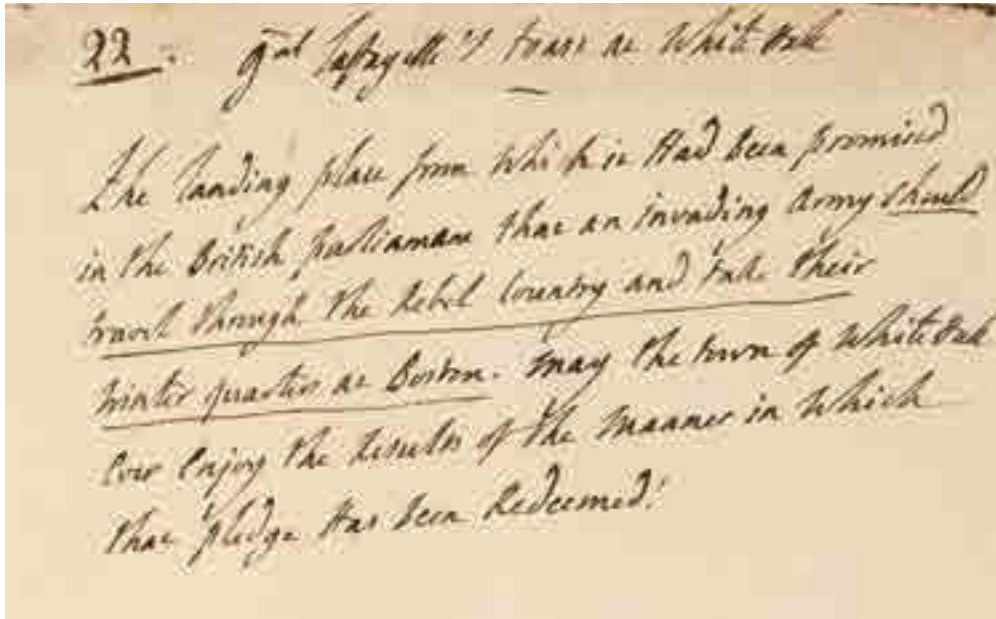 22. gnal Lafayette's toast at White Hall
The landing place from which it Had been promised
in the British parliament that an invading Army should
travel through the Rebel Country and take their
winter quarters at Boston. may the town of White Hall
Ever Enjoy the Results of the manner in which
that pledge Has been Redeemed!